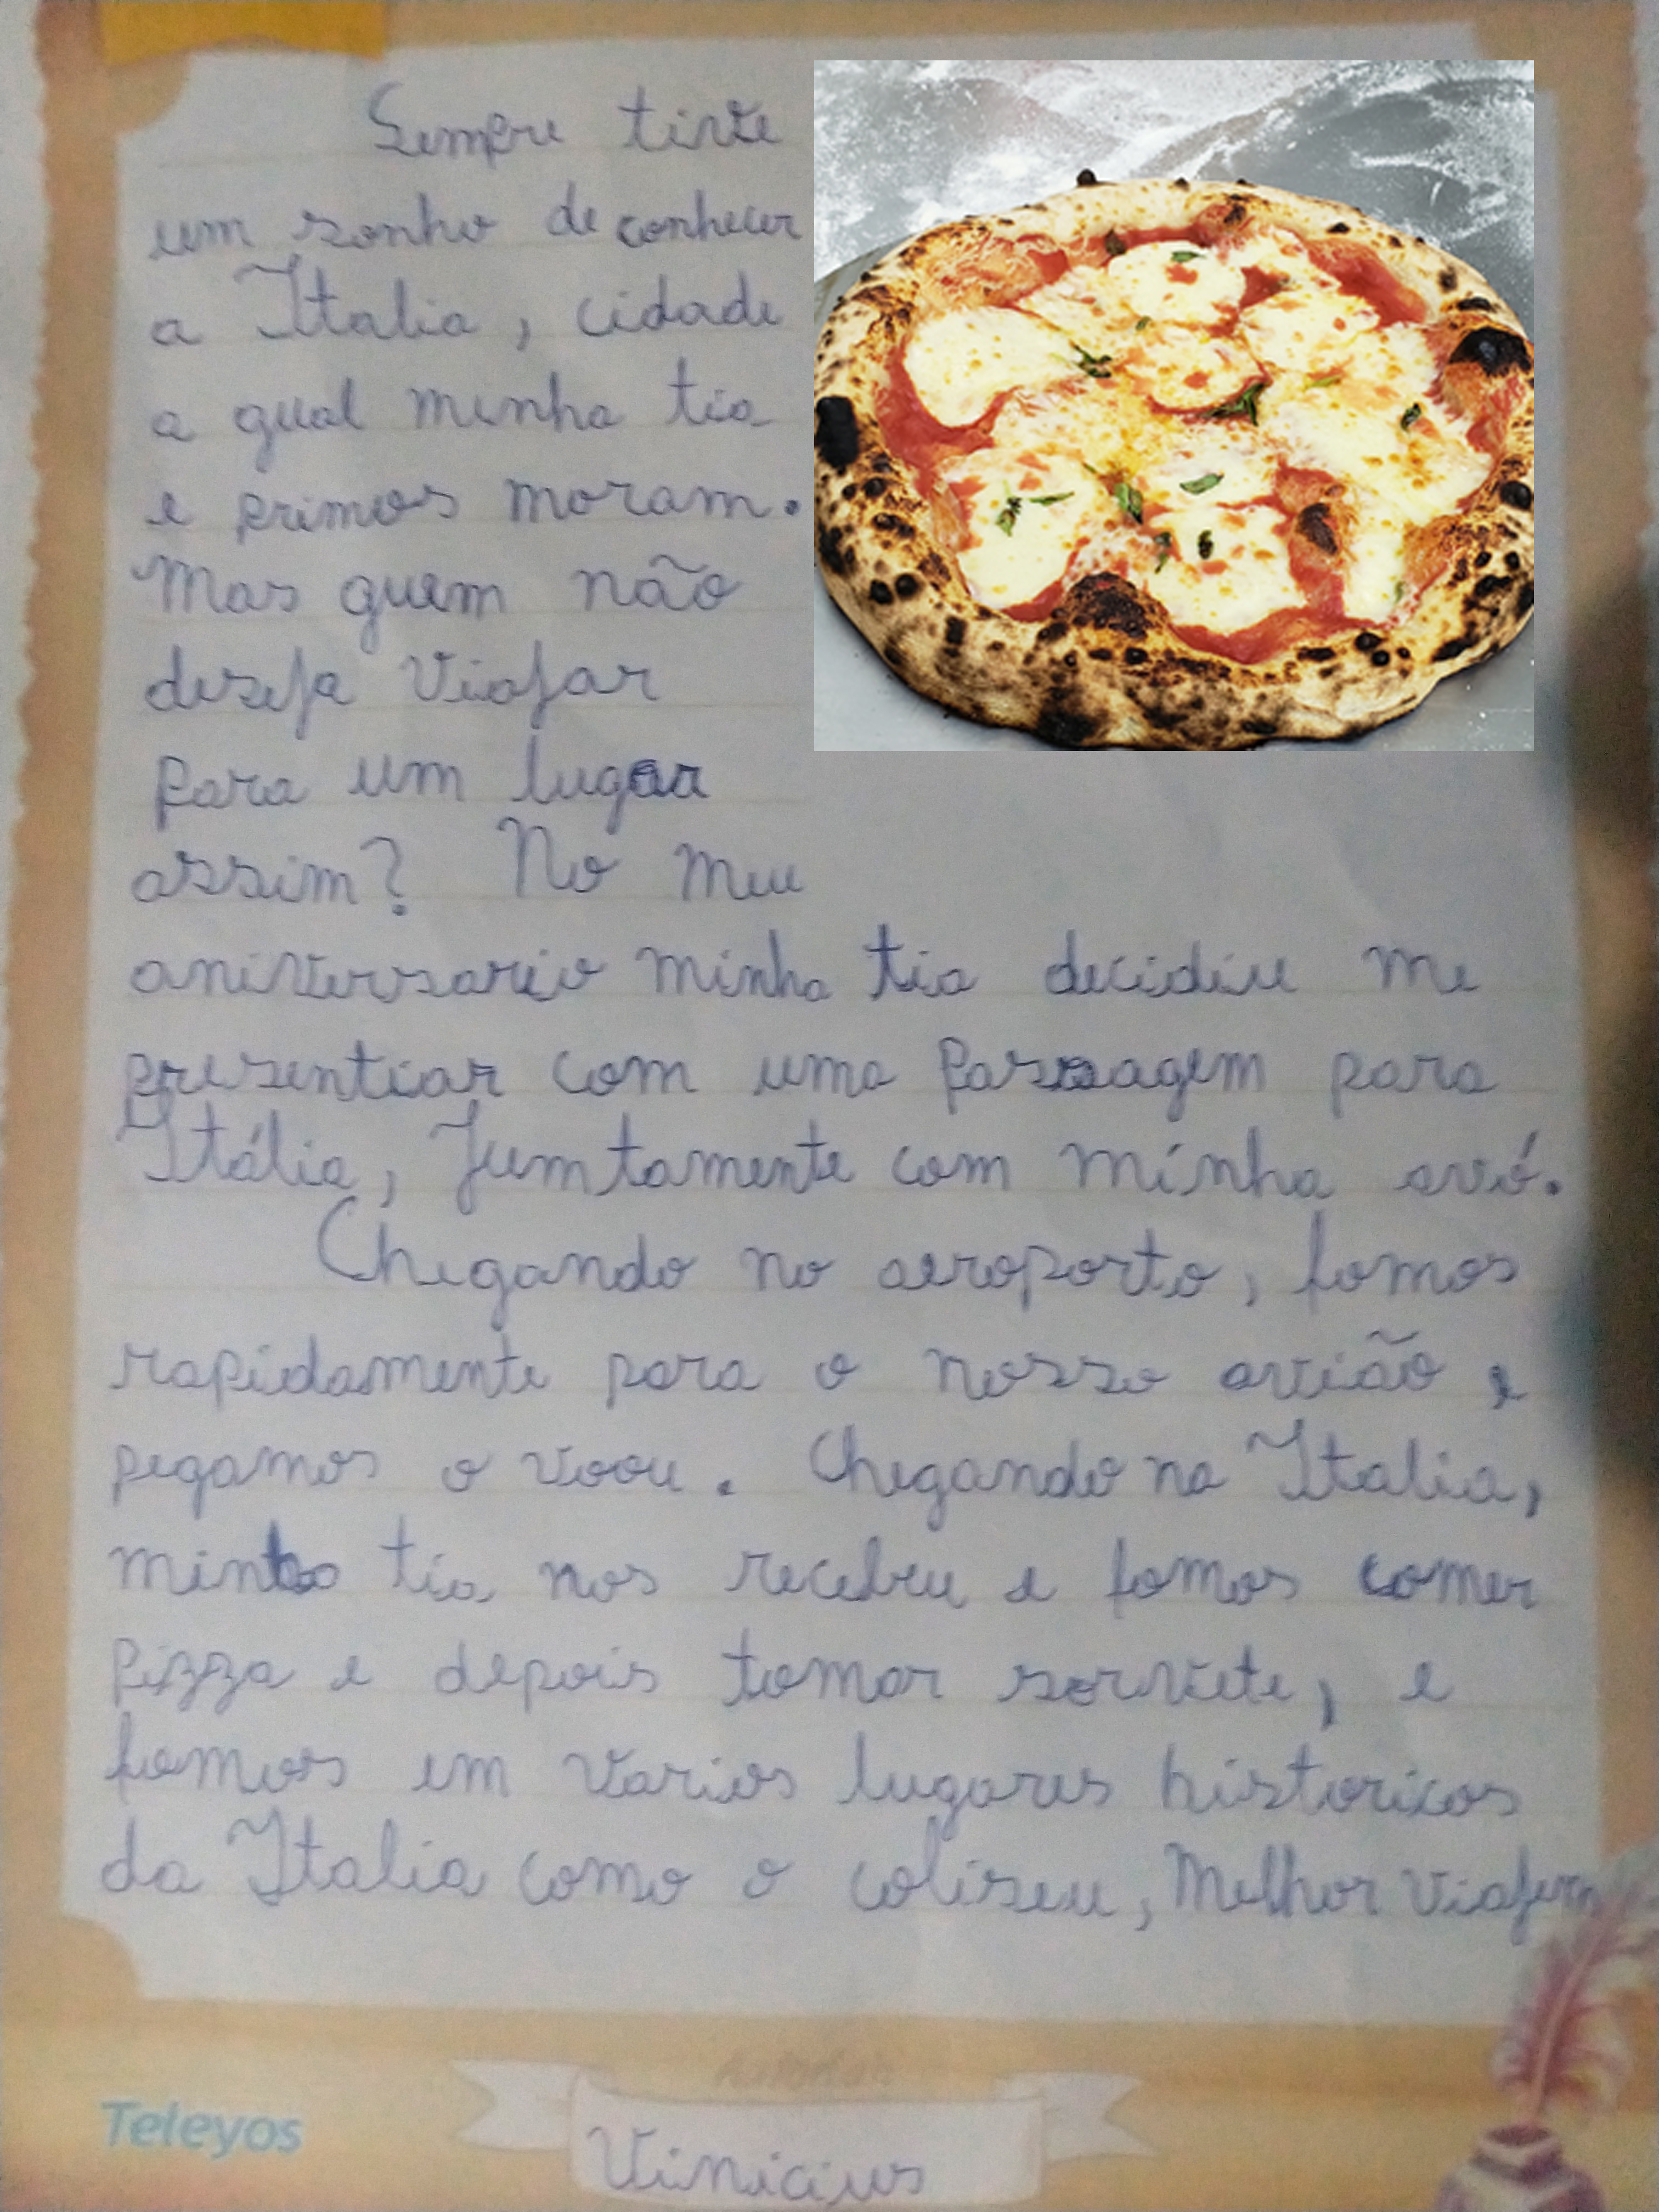 Sempre tive
um sonho de conhecer
a Italia, cidade
a qual minha tia
e primos moram.
Mas quem não
deseja viajar
para um lugar
assim? No meu
aniversario minha tia decidiu me
presentiar com uma passagem para
Itália, Jumtamente com minha avó.
Chegando no aeroporto, fomos
rapidamente para o nosso avião e
pegamos o voou. Chegando na Italia,
minha tia nos recebeu e fomos comer
pizza e depois tomar sorvete, e
fomos em varios lugares historicos
da Italia como o coliseu, Melhor viajem
Teleyos
Vinicius